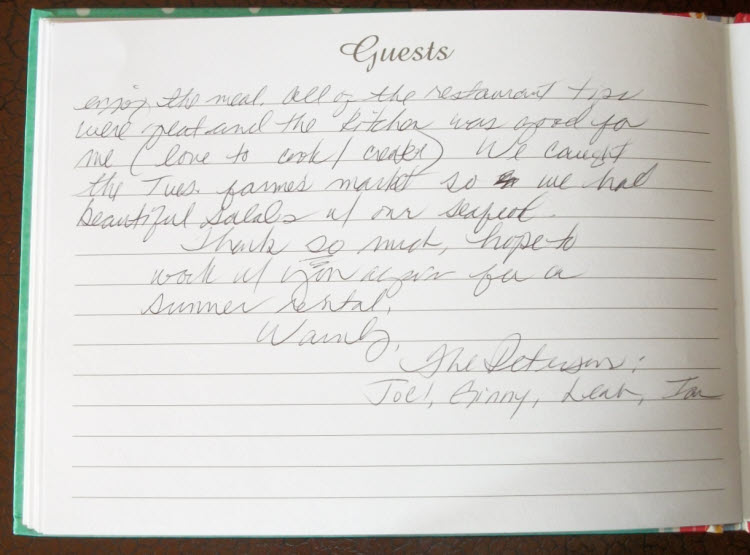 Guests
enjoy the meal. All of the restaurant tips
were great and the kitchen was good for
me (love to cook / create) We caught
the Tues. farmes market so we had
beautiful salads w/ our seafood.
Thank so much, hope to
work w/ you again for a
summer rental.
Warmly,
The Petersons:
Joel, Ginny, Leah, Ian